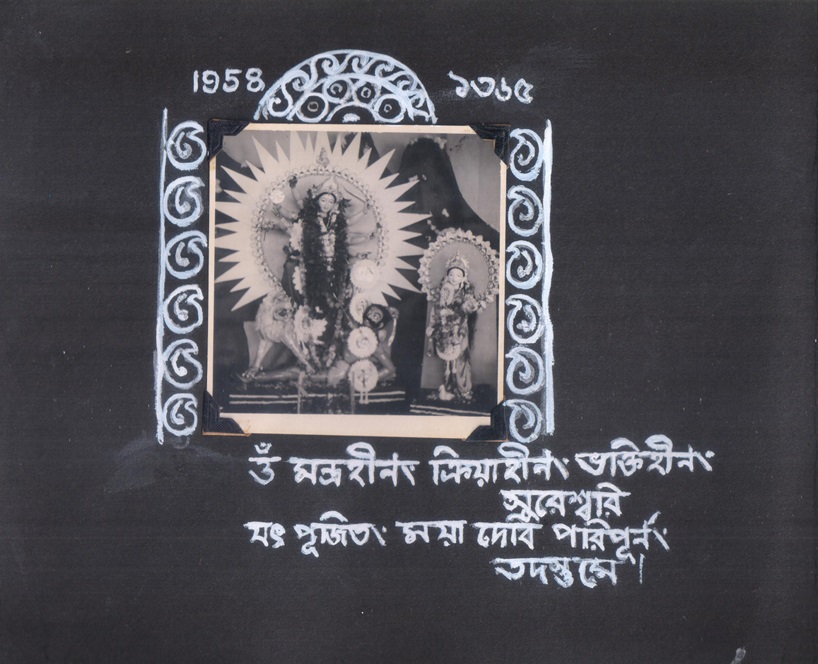 1958 ১৩৬৫
ওঁ মন্ত্রহীনং ক্রিয়াহীনং ভক্তিহীনং
সুরেশ্বরি
যৎ পূজিতং ময়া দেবি পরিপূর্নং
তদস্তুমে।